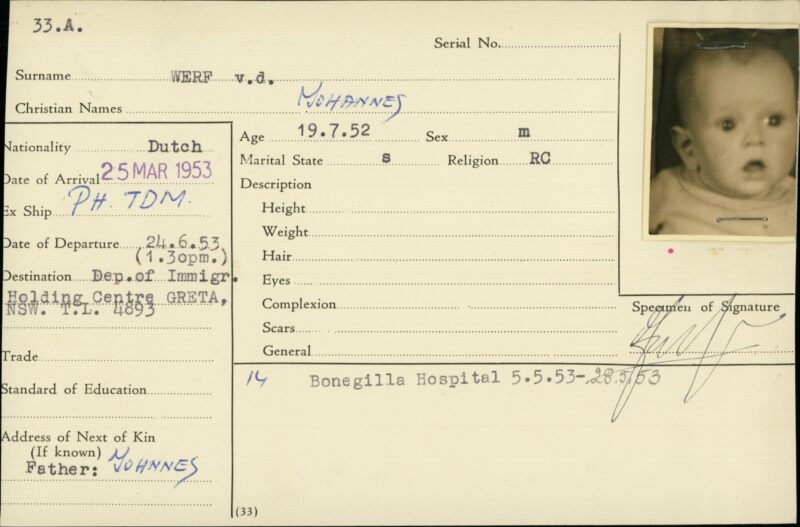 33.A.
Serial No.
Surname WERF v.d.
Christian Names JOHANNES
Nationality Dutch
Date of Arrival 25 MAR 1953
Ex Ship PH. TDM.
Date of Departure 24.6.53
(1.3opm.)
Destination Dep.of Immigr.
Holding Centre GRETA,
NSW. T.L. 4893
Trade
Standard of Education
Address of Next of Kin
(If known)
Father: JOHNNES
Age 19.7.52 Sex m
Marital State s Religion RC
Description
Height
Weight
Hair
Eyes
Complexion
Scars
General
Specimen of Signature
14 Bonegilla Hospital 5.5.53-28.5.53
(33)